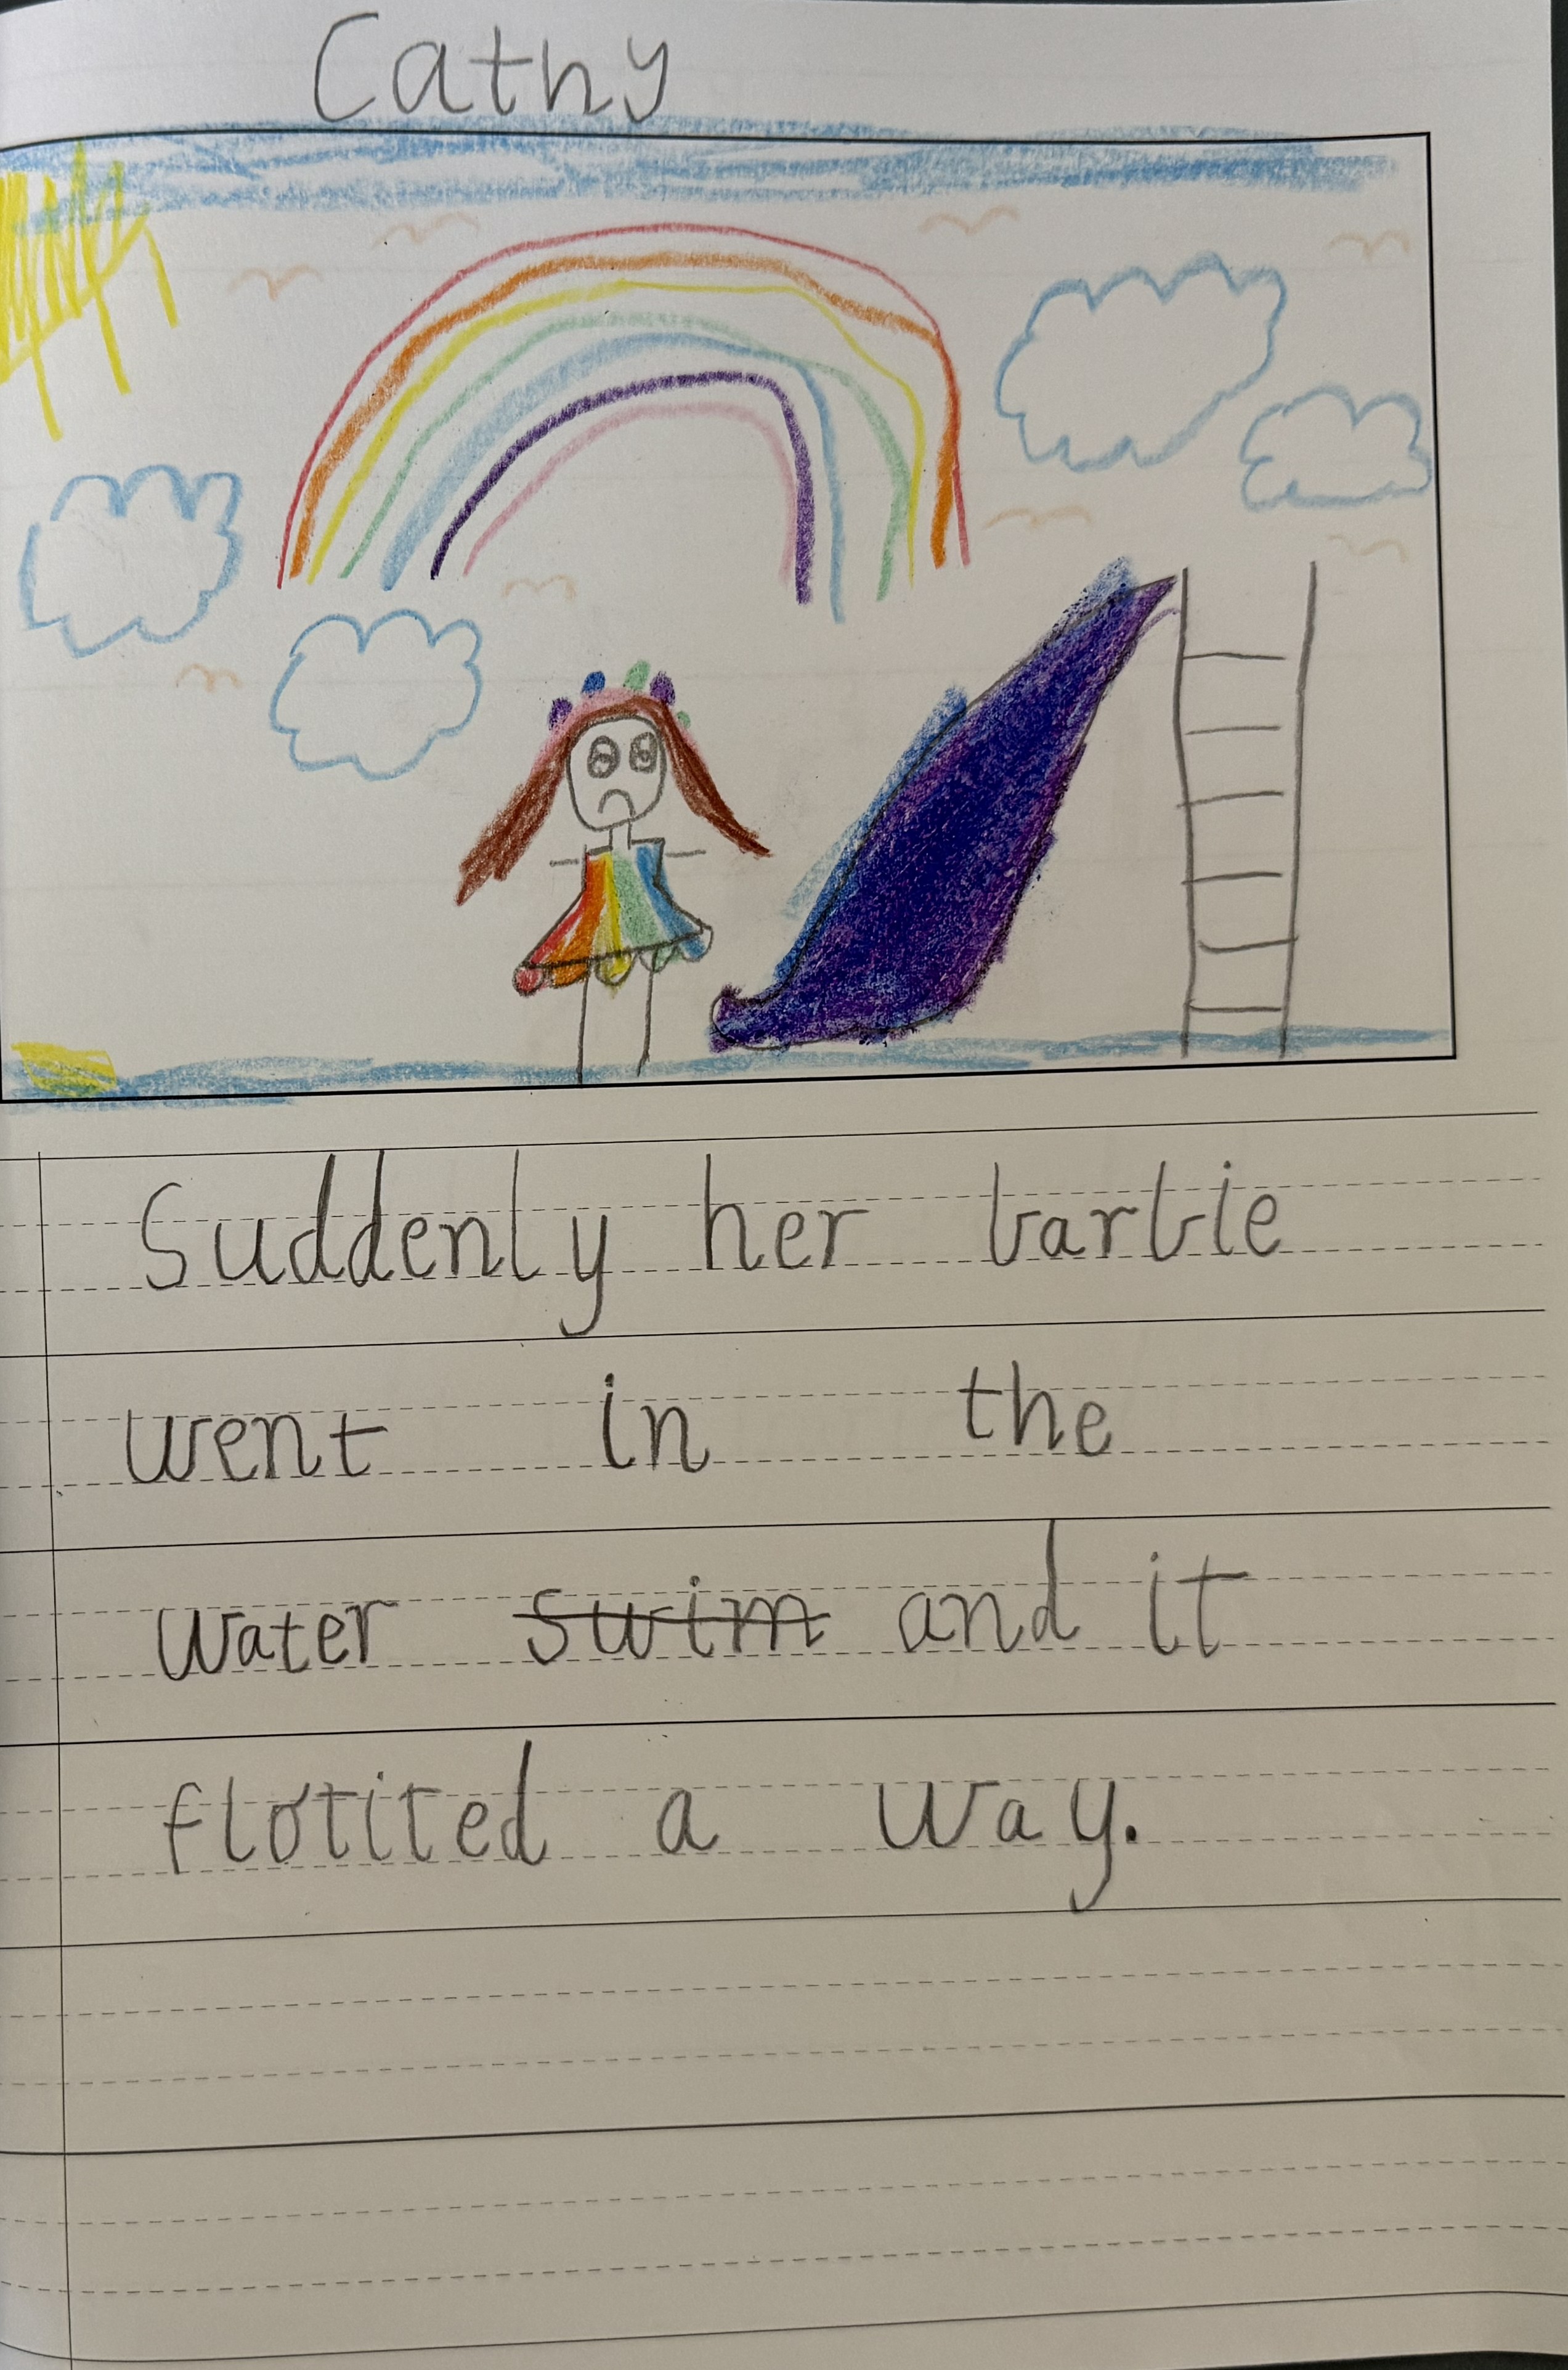 Cathy
Suddenly her barbie
went in the
water swim and it
flotited a way.